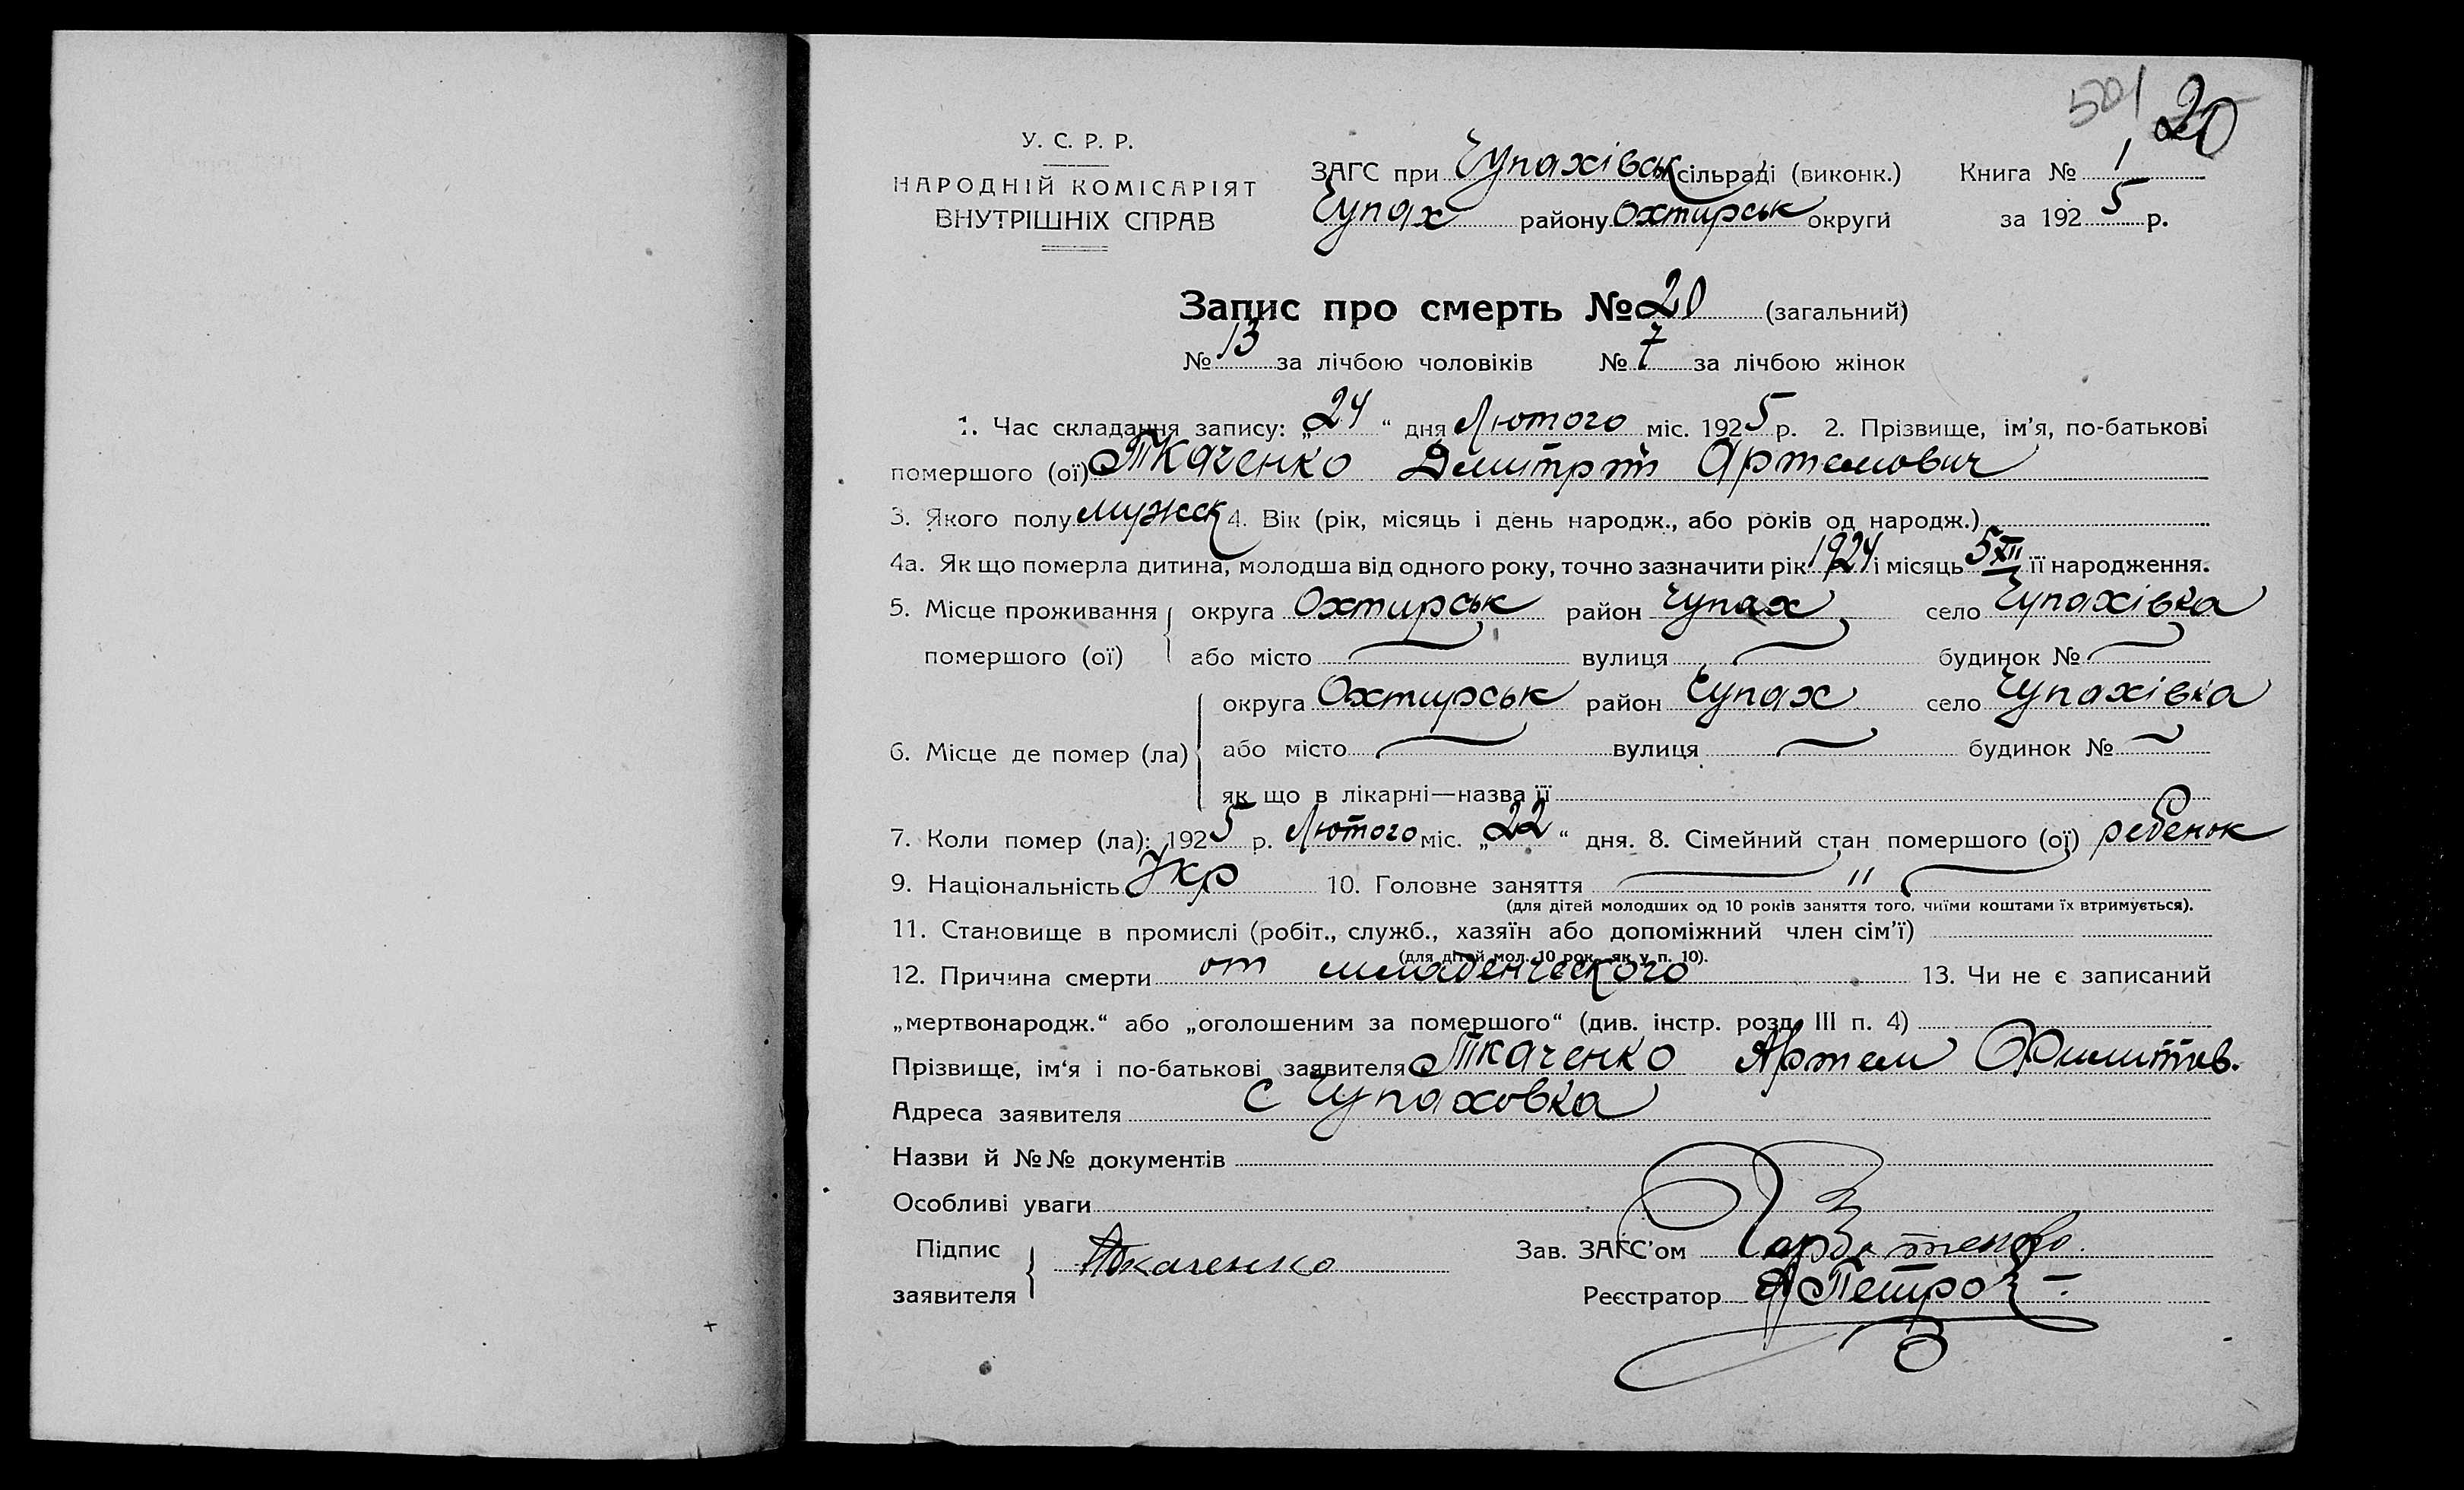 501 20
У. С. Р. Р.
НАРОДНІЙ КОМІСАРІЯТ
ВНУТРІШНІХ СПРАВ
ЗАГС при Чупахівськ сільраді (виконк.) Книга № 1
Чупах району Охтирськ округи за 192 5 р.
Запис про смерть № 20 (загальний)
№ 13 за лічбою чоловіків № 7 за лічбою жінок
1. Час складання запису: „ 24 “ дня Лютого міс. 192 5 р. 2. Прізвище, ім'я, по-батькові
помершого (ої) Ткаченко Дмитрій Артемович
3. Якого полу мужск 4. Вік (рік, місяць і день народж., або років од народж.)
4а. Як що померла дитина, молодша від одного року, точно зазначити рік 1924 і місяць 5 XII її народження.
5. Місце проживання округа Охтирськ район Чупах село Чупахівка
помершого (ої) або місто вулиця будинок №
округа Охтирськ район Чупах село Чупахівка
6. Місце де помер (ла) або місто вулиця будинок №
як що в лікарні—назва її
7. Коли помер (ла): 192 5 р. Лютого міс. „ 22 “ дня. 8. Сімейний стан помершого (ої) ребенок
9. Національність Укр 10. Головне заняття "
(для дітей молодших од 10 років заняття того, чиїми коштами їх втримується).
11. Становище в промислі (робіт., служб., хазяїн або допоміжний член сім'ї)
(для дітей мол. 10 рок., як у п. 10).
12. Причина смерти от младенческого 13. Чи не є записаний
„мертвонародж.“ або „оголошеним за помершого“ (див. інстр. розд. III п. 4)
Прізвище, ім'я і по-батькові заявителя Ткаченко Артем
Адреса заявителя с Чупаховка
Назви й №№ документів
Особливі уваги
Підпис Ткаченко Зав. ЗАГС'ом
заявителя Реєстратор А Петров